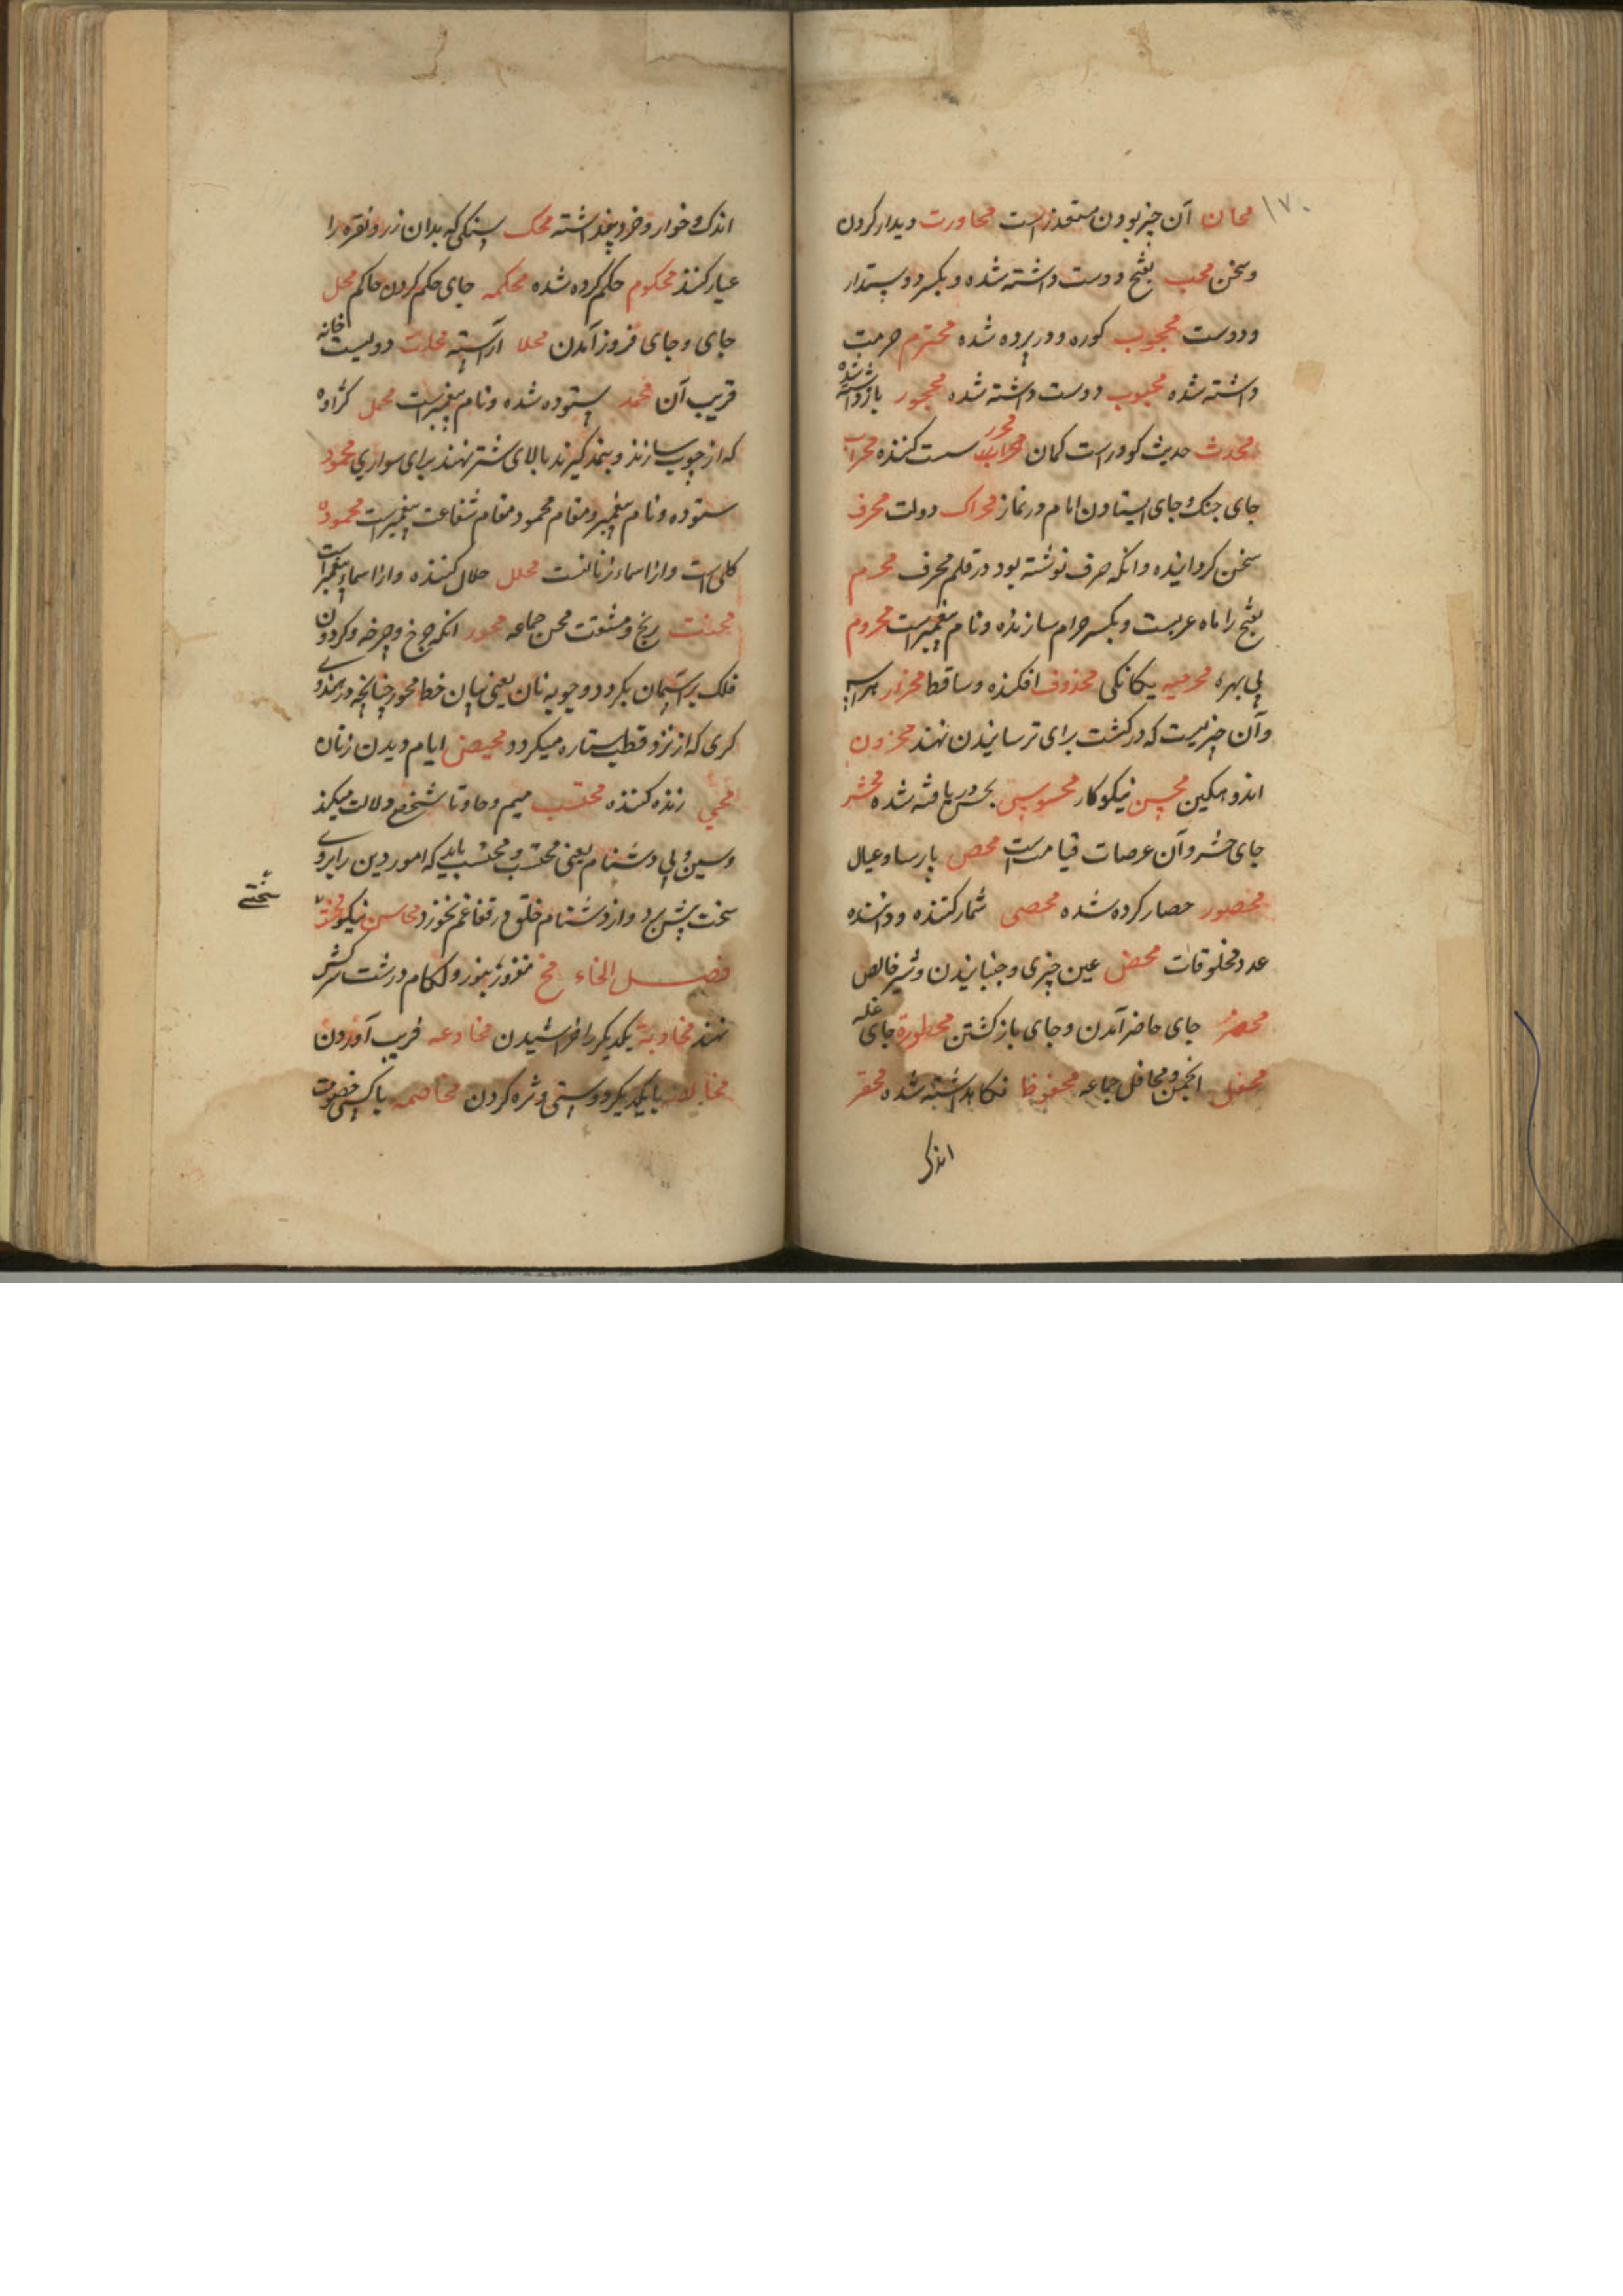 ۱۷۰
محان آن چیز بودن متعذر است محاورت دیدار کردن
و سخن محب بفتح دوست داشته شده و بکسر دوستدار
و دوست محجوب کوره و در پرده شده محترم حرمت
داشته شده محبوب دوست داشته شده محجور باز داشته شده
محدث حدیث کو و راست کمان محرر سست کننده محراب
جای جنک و جای ایستادن امام در نماز محراک دولت محرف
سخن کردانیده و انکه حرف نوشته بود در قلم محرف محرم
بفتح را ماه عربست و بکسر حرام سازنده و نام پیغمبر است محروم
بی بهره محرمیه یکانکی محذوف افکنده و ساقط
و آن چیزیست که در کشت برای ترسانیدن نهند محزون
اندوهکین محسن نیکوکار محسوس بحس دریافته شده محشر
جای حشر و آن عرصات قیامت است محصن پارسا و عیال
محصور حصار کرده شده محصی شمار کننده و داننده
عدد مخلوقات محض عین چیزی و جنبانیدن و شیر خالص
محضر جای حاضر آمدن و جای باز کشتن محطورة جای غله
محفل انجمن و محافل جماعه محفوظ نکاهداشته شده محقر
اندک
اندک و خوار و خرد پنداشته محک سنکی که بدان زر و نقره را
عیار کنند محکوم حکم کرده شده محکمه جای حکم کردن حاکم محل
جای و جای فروز آمدن محلا آراسته محلت دویست خانه
قریب آن محمد ستوده شده و نام پیغمبر است محمل کژاوه
که از چوب سازند و بنمد کیرند بالای شتر نهند برای سواری محمود
ستوده و نام پیغمبر و مقام محمود مقام شفاعت پیغمبر است محموده
کلی است و از اسماء زنانست محلل حلال کننده و از اسماء پیغمبر است
محنت رنج و مشقت محن جماعه محور انکه چرخ و چرخه و کردون
فلک بر آسمان بکردد و چوبه نان یعنی بیان خط محور چنانچه در هندوی
کری که از نزد قطب ستاره میکردد محیض ایام دیدن زنان
محیی زنده کننده محتسب میم و حا و تا شخص دلالت میکند
و سین و بی دشنام یعنی محتسب باید که امور دین را بروی
سخت پیش برد و از دشنام خلق در قفا غم نخورد محاسن نیکو
سختی
فصل الخاء مخ مغز و زنبور و لکام درشت که سرکش
نهند مخادبة یکدیکر را خراشیدن مخادعه فریب آوردن
مخاللت با یکدیکر دوستی و ثره کردن مخاصمه با کسی خصومت